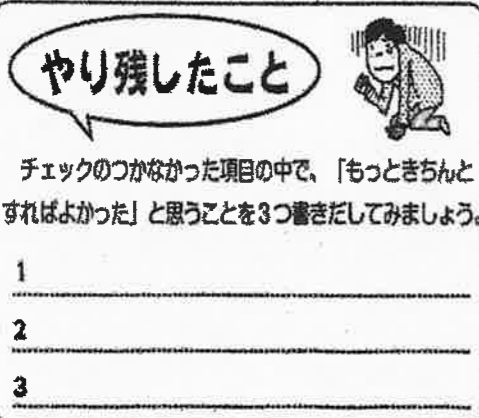 やり残したこと
チェックのつかなかった項目の中で、「もっときちんと
すればよかった」と思うことを3つ書きだしてみましょう。
1
2
3